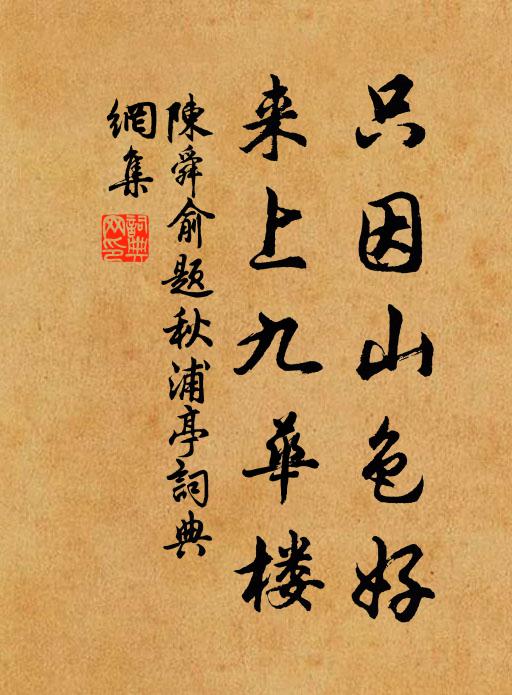 只因山色好
来上九華楼
陳舜俞题秋浦亭詞典
網集
詞典網印